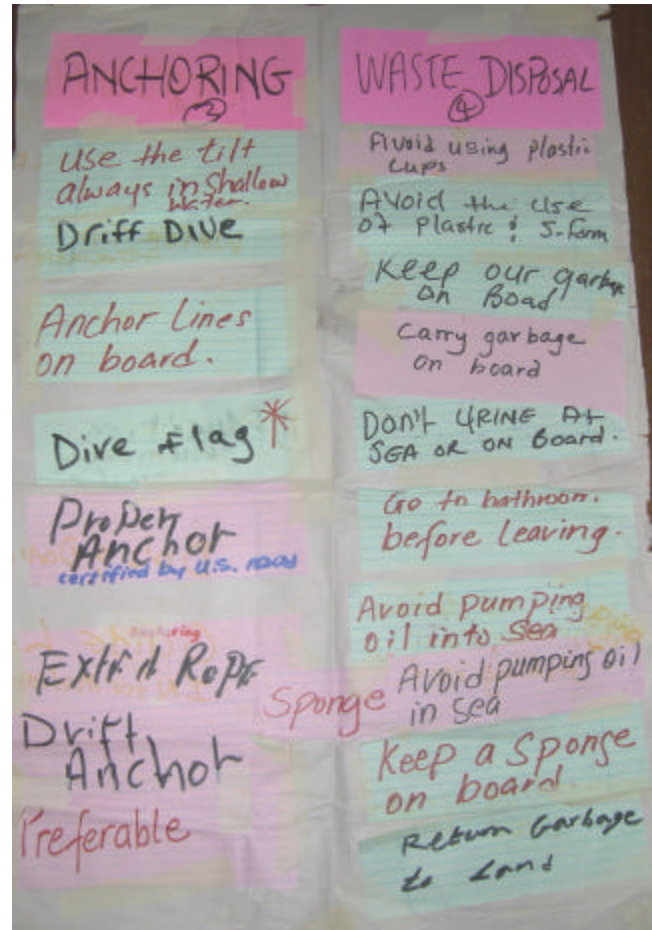 ANCHORING
3
use the tilt
always in shallow
water.
Driff DIVE
Anchor Lines
on board.
Dive flag *
Proper
Anchor
certified by U.S. navy
Anchoring
Extra Rope
Drift
Anchor
Preferable
WASTE DISPOSAL
4
Avoid using plastic
cups
Avoid the use
of plastic & S-form
Keep our garbage
on Boad
Carry garbage
on board
Don't URINE At
SEA OR ON Board.
Go to bathroom.
before leaving.
Avoid pumping
oil into Sea
Sponge
Avoid pumping oil
in sea
Keep a Sponge
on board.
Return Garbage
to Land